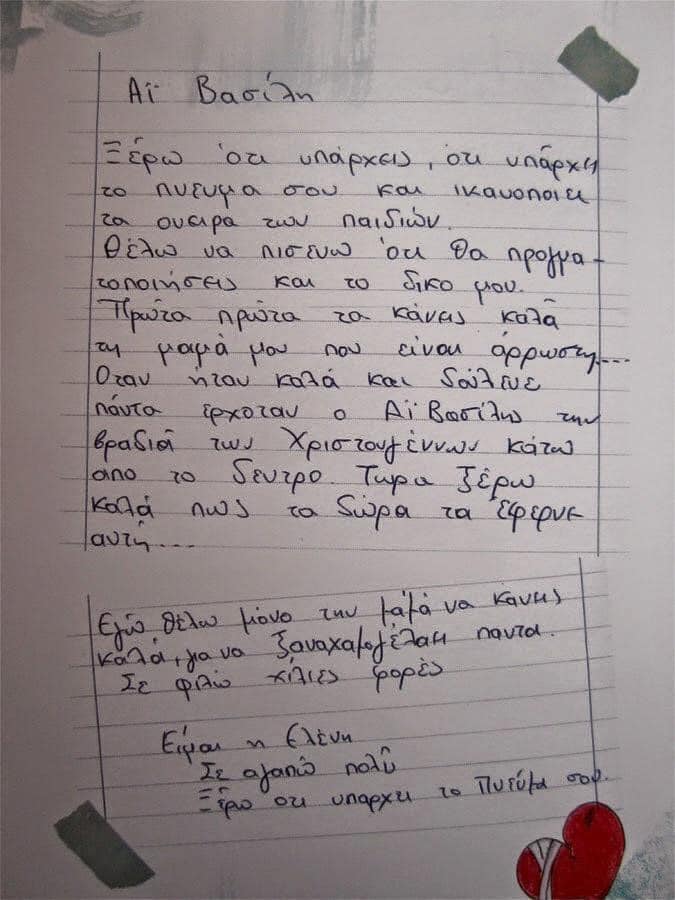 Αϊ Βασίλη
Ξέρω ότι υπάρχεις, ότι υπάρχη
το πνευμα σου και ικανοποιει
τα ονειρα των παιδιών.
Θέλω να πισευω ότι θα πραγμα-
τοποιήσεις και το δικο μου.
Πρώτα πρώτα να κάνεις καλά
τη μαμά μου που είναι άρρωστη....
Όταν ήταν καλά και δούλευε
πάντα έρχοταν ο Αϊ Βασίλης την
βραδιά των Χριστουγέννων κάτω
απο το δεντρο. Τωρα ξέρω
καλά πως τα δώρα τα έφερνε
αυτή....
Εγώ θέλω μόνο την μαμά να κανεις
καλά, για να ξαναχαμογέλαει παντα.
Σε φιλώ χίλιες φορές
Είμαι η Ελένη
Σε αγαπώ πολύ
Ξέρω οτι υπαρχει το Πνεύμα σου.